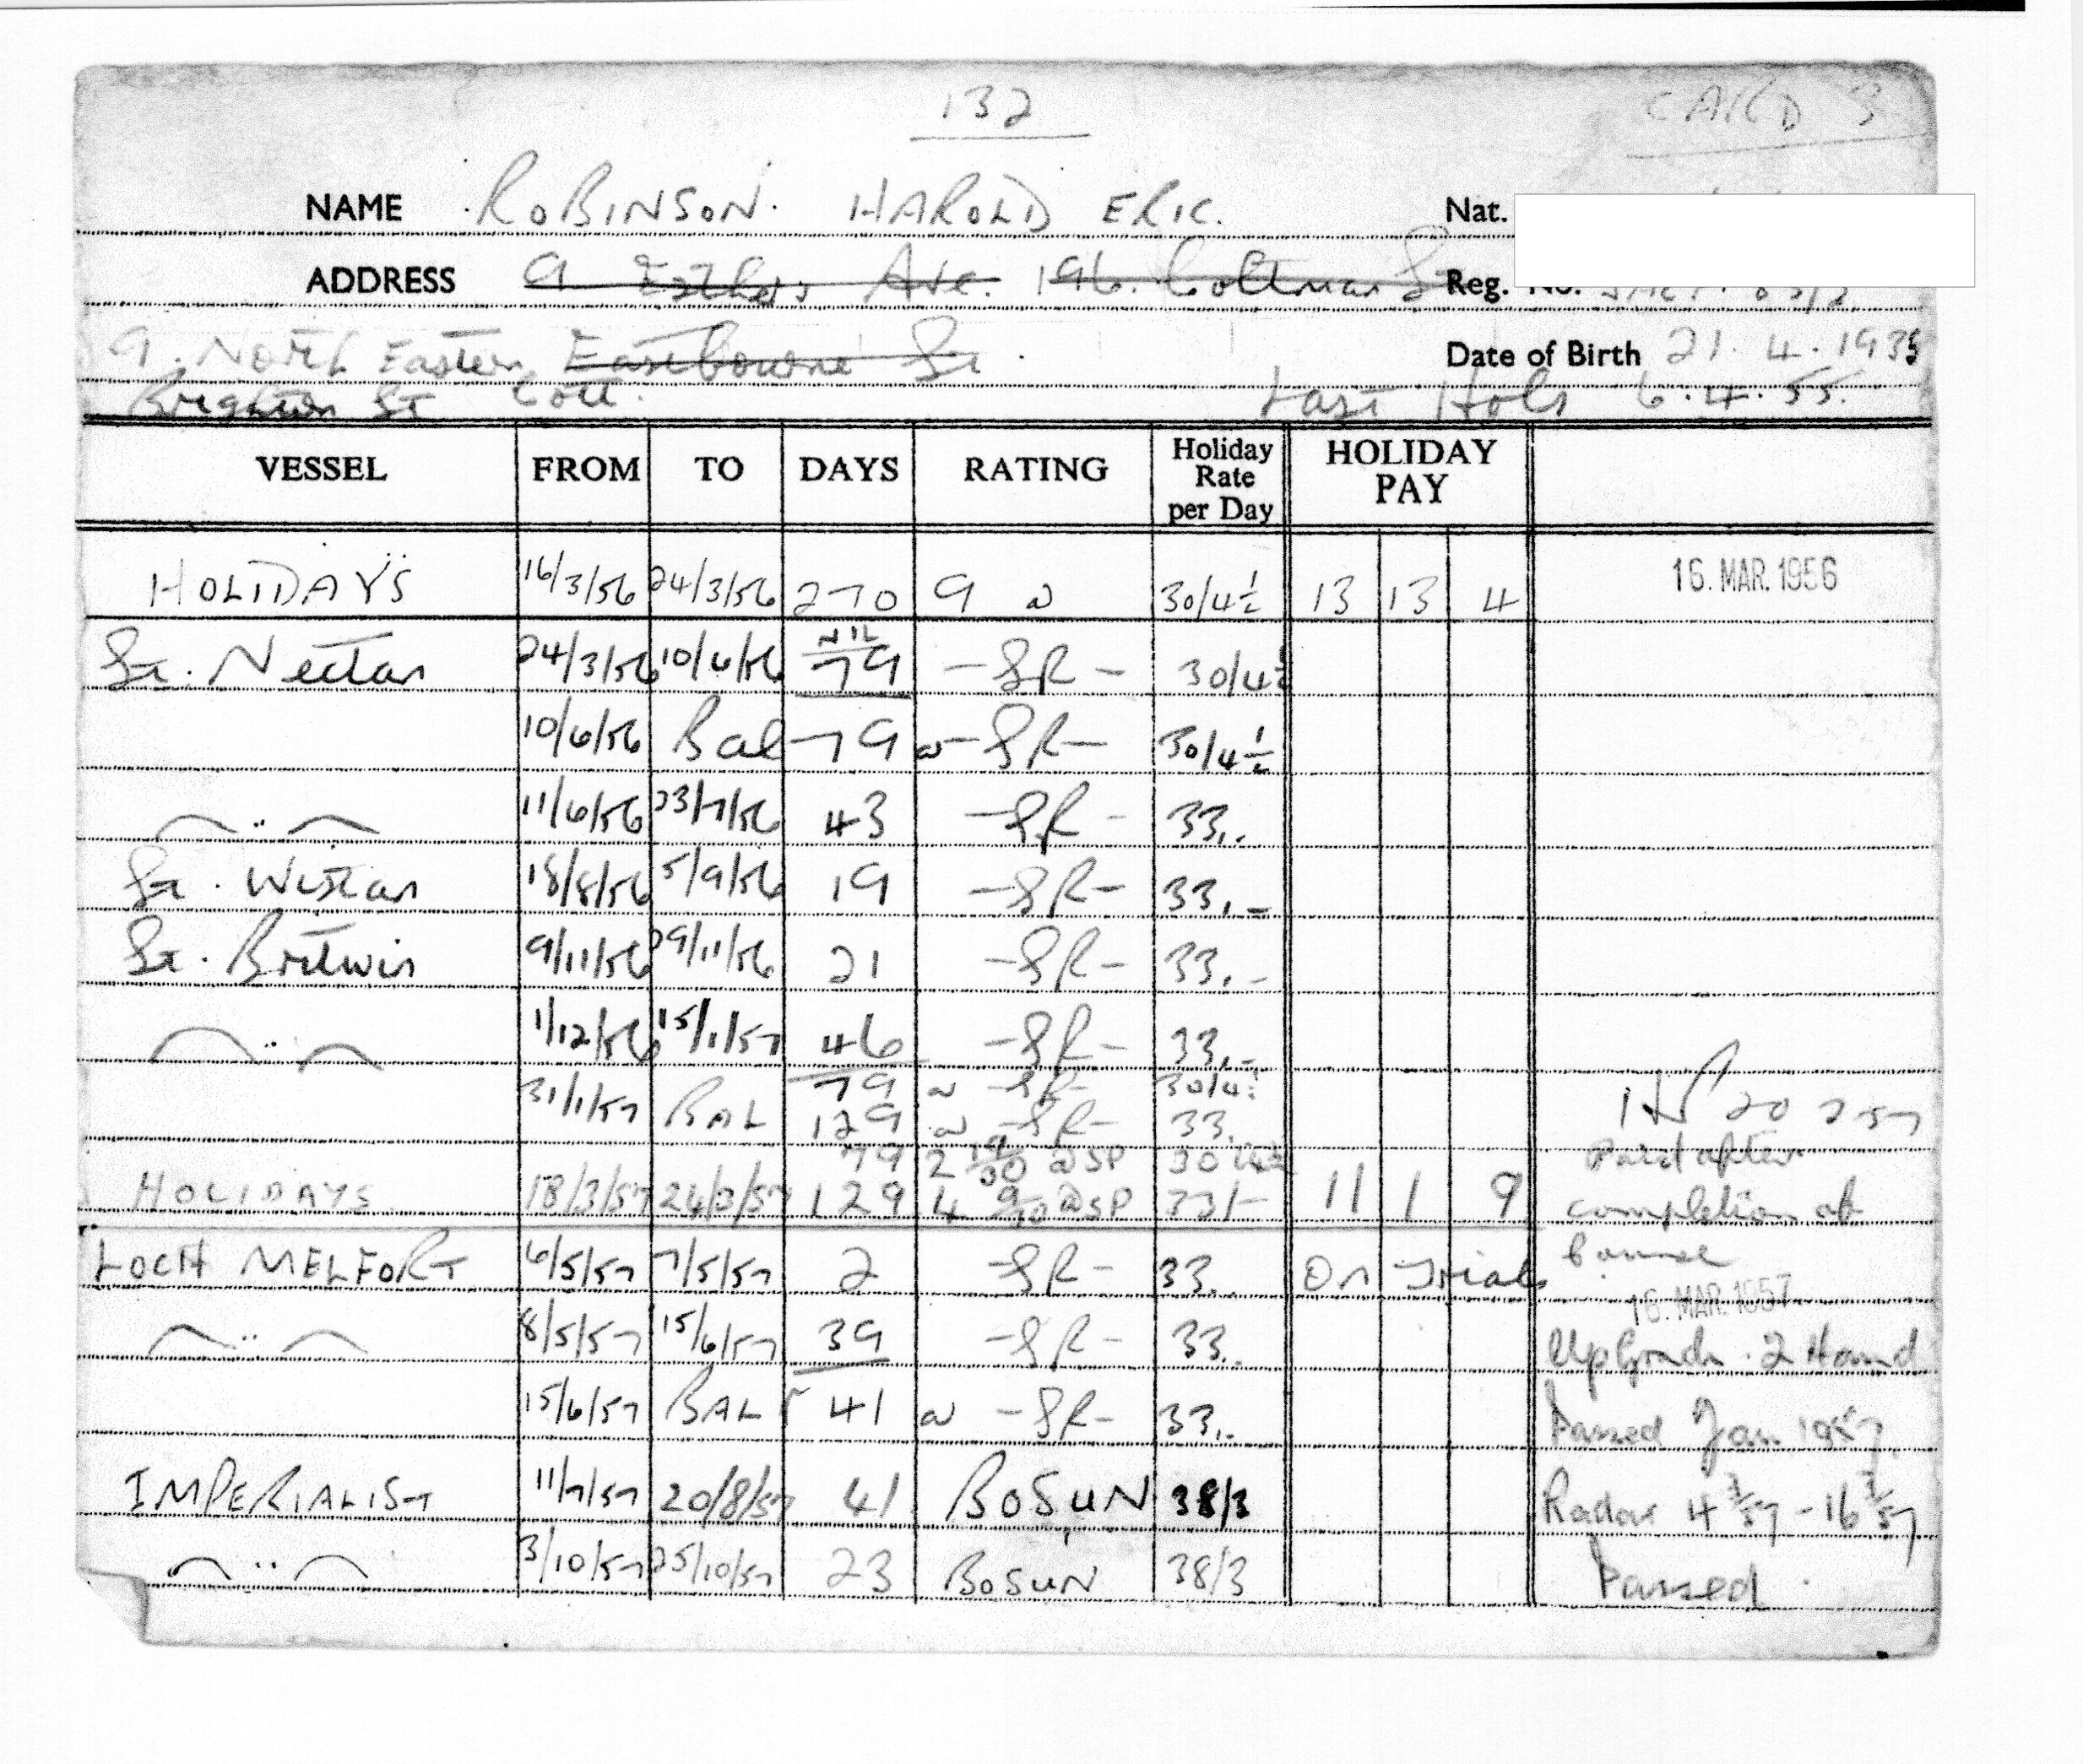 132
CARD 3
NAME ROBINSON. HAROLD ERIC. Nat.
ADDRESS 9 Esthers Ave. 196. Coltman St Reg. No.
9. North Eastern Eastbourne St Date of Birth 21.4.1935
Brighton St Cott. Last Hols 6.4.55.
VESSEL FROM TO DAYS RATING Holiday Rate per Day HOLIDAY PAY
HOLIDAYS 16/3/56 24/3/56 270 9 @ 30/4½ 13 13 4 16. MAR. 1956
NIL
St. Nectan 24/3/56 10/6/56 79 -SR- 30/4½
10/6/56 Bal 79 @ -SR- 30/4½
" 11/6/56 23/7/56 43 -SR- 33..
St. Wistan 18/8/56 5/9/56 19 -SR- 33.-
St. Britwin 9/11/56 29/11/56 21 -SR- 33.-
" 1/12/56 15/1/57 46 -SR- 33.-
79 @ -SR- 30/4½
31/1/57 BAL 129 @ -SR- 33. 20 2 57
79 2 19/30 @ SP 30/4½ Paid after
HOLIDAYS 18/3/57 24/3/57 129 4 9/30 @ SP 33/- 11 1 9 completion of
LOCH MELFORT 6/5/57 7/5/57 2 -SR- 33.. On Trials
16. MAR. 1957
" 8/5/57 15/6/57 39 -SR- 33.. UpGrade. 2 Hand
15/6/57 BAL 41 @ -SR- 33.. Passed Jan 1957
IMPERIALIST 11/7/57 20/8/57 41 BOSUN 38/3 Radar 4 3/57 - 16 3/57
" 3/10/57 25/10/57 23 BOSUN 38/3 Passed.